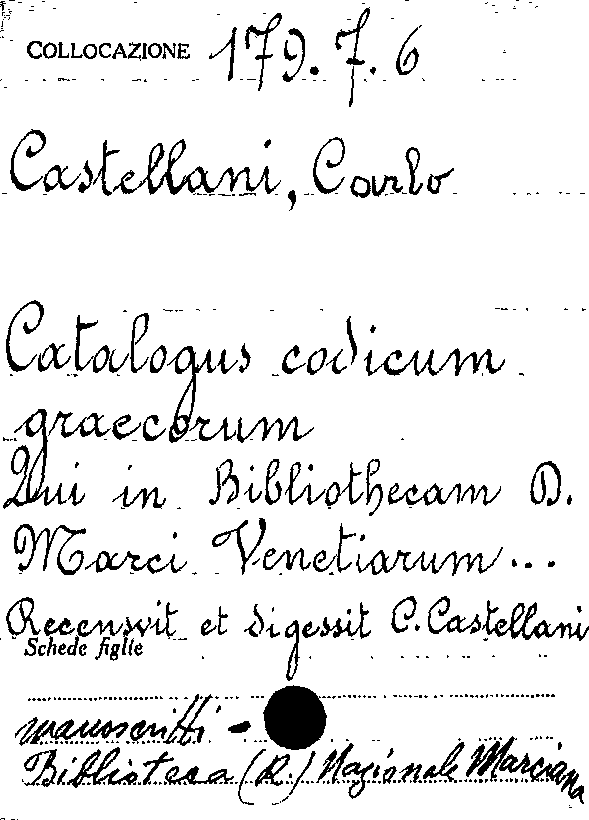 COLLOCAZIONE 179.7.6
Castellani, Carlo
Catalogus codicum
graecorum
Qui in Bibliothecam D.
Marci Venetiarum...
Recensvit et digessit C. Castellani
Schede figlie
manoscritti -
Biblioteca (R.) Nazionale Marciana